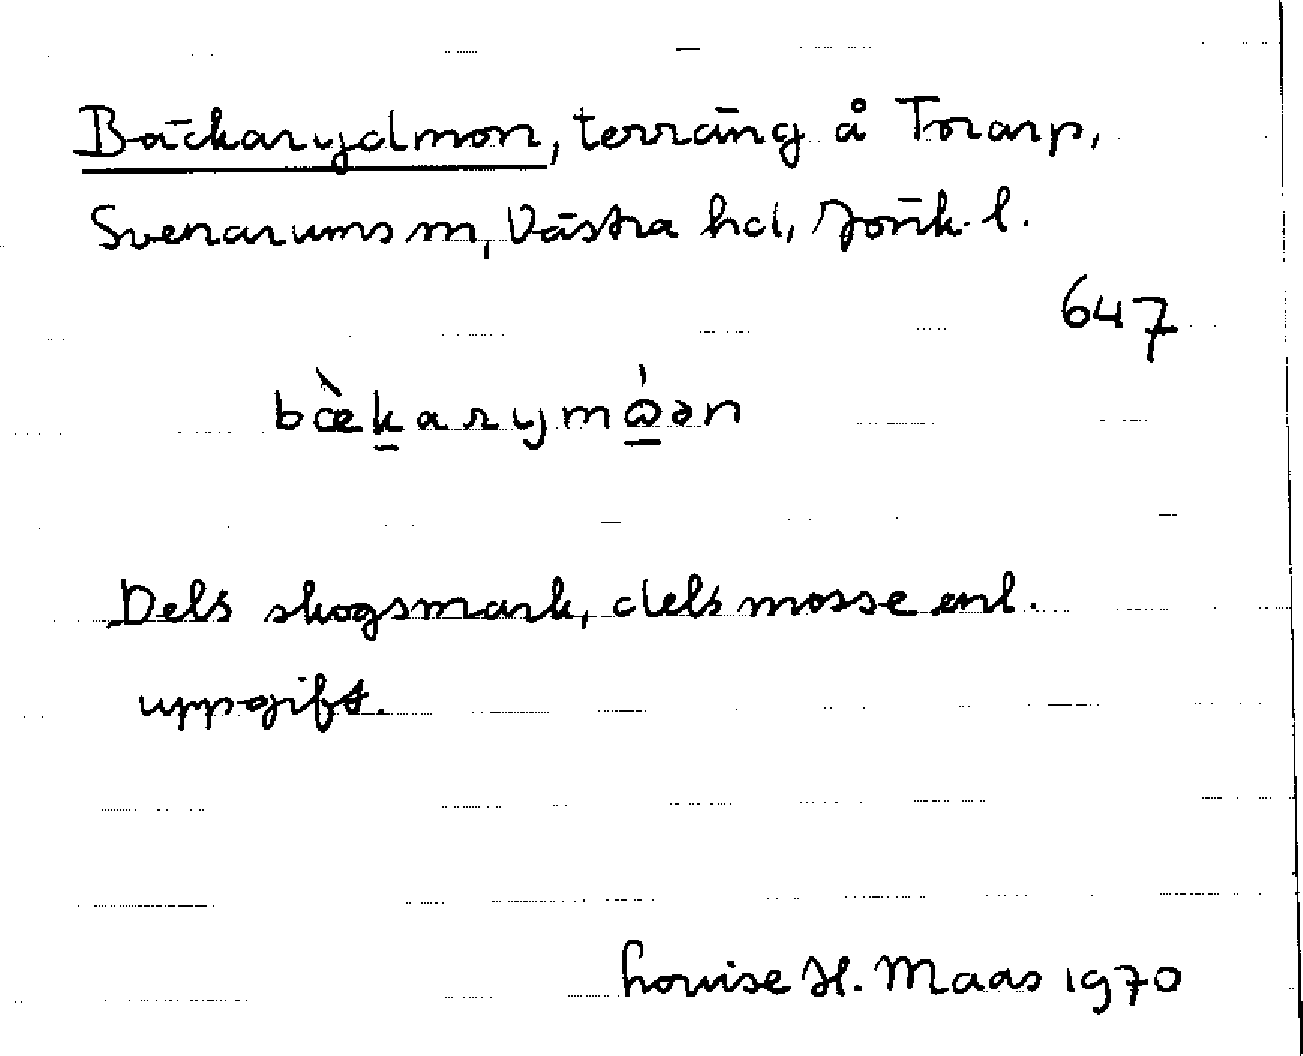 Bäckarydmon, terräng å Torarp,
Svenarums sn, Västra hd, Jönk. l.
647
bæ̀k̠arymώ̠ən
Dels skogsmark, dels mosse enl.
uppgift.
Louise H. Maas 1970